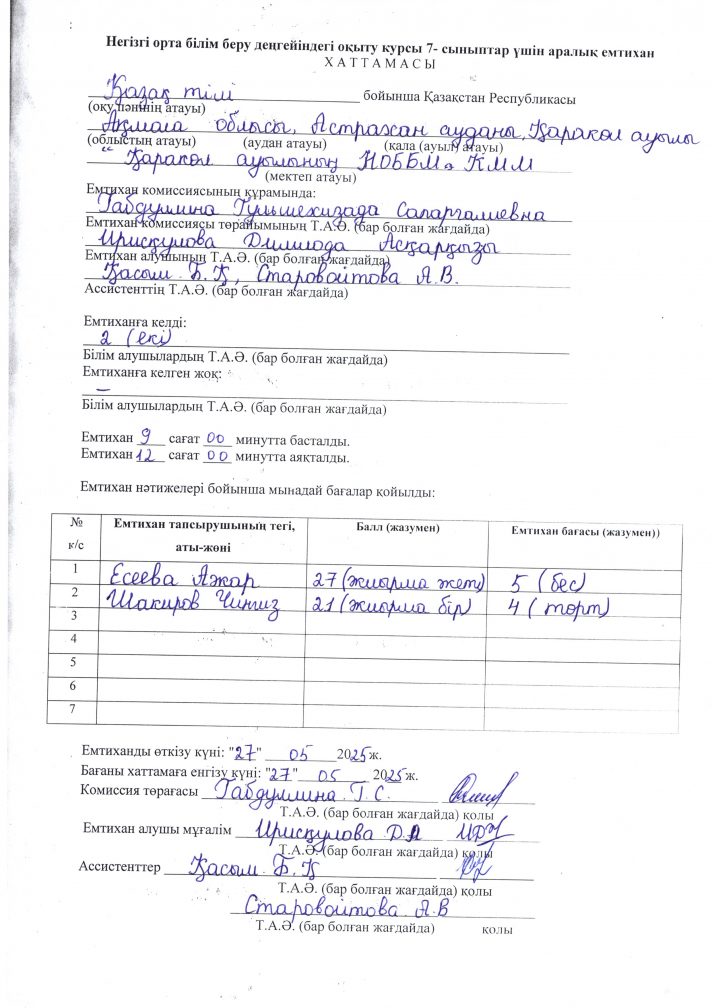 Негізгі орта білім беру деңгейіндегі оқыту курсы 7- сыныптар үшін аралық емтихан
ХАТТАМАСЫ
Қазақ тілі бойынша Қазақстан Республикасы
(оқу пәнінің атауы)
Ақмола облысы, Астрахан ауданы, Қаракөл ауылы
(облыстың атауы) (аудан атауы) (қала (ауыл) атауы)
"Қаракөл ауылының НОББМ" КММ
(мектеп атауы)
Емтихан комиссиясының құрамында:
Габдуллина Гульшехизада Сапаргалиевна
Емтихан комиссиясы төрайымының Т.А.Ә. (бар болған жағдайда)
Ирисқулова Дилшода Асқарқызы
Емтихан алушының Т.А.Ә. (бар болған жағдайда)
Қасым Б.Қ, Старовойтова А.В.
Ассистенттің Т.А.Ә. (бар болған жағдайда)
Емтиханға келді:
2 (екі)
Білім алушылардың Т.А.Ә. (бар болған жағдайда)
Емтиханға келген жоқ:
–
Білім алушылардың Т.А.Ә. (бар болған жағдайда)
Емтихан 9 сағат 00 минутта басталды.
Емтихан 12 сағат 00 минутта аяқталды.
Емтихан нәтижелері бойынша мынадай бағалар қойылды:
№ к/с Емтихан тапсырушының тегі, аты-жөні Балл (жазумен) Емтихан бағасы (жазумен))
1 Есеева Ажар 27 (жиырма жеті) 5 (бес)
2 Шакиров Чингиз 21 (жиырма бір) 4 (төрт)
3
4
5
6
7
Емтиханды өткізу күні: "27" 05 2025 ж.
Бағаны хаттамаға енгізу күні: "27" 05 2025 ж.
Комиссия төрағасы Габдуллина Г.С.
Т.А.Ә. (бар болған жағдайда) қолы
Емтихан алушы мұғалім Ирисқулова Д.А
Т.А.Ә. (бар болған жағдайда) қолы
Ассистенттер Қасым Б.Қ
Т.А.Ә. (бар болған жағдайда) қолы
Старовойтова А.В
Т.А.Ә. (бар болған жағдайда) қолы